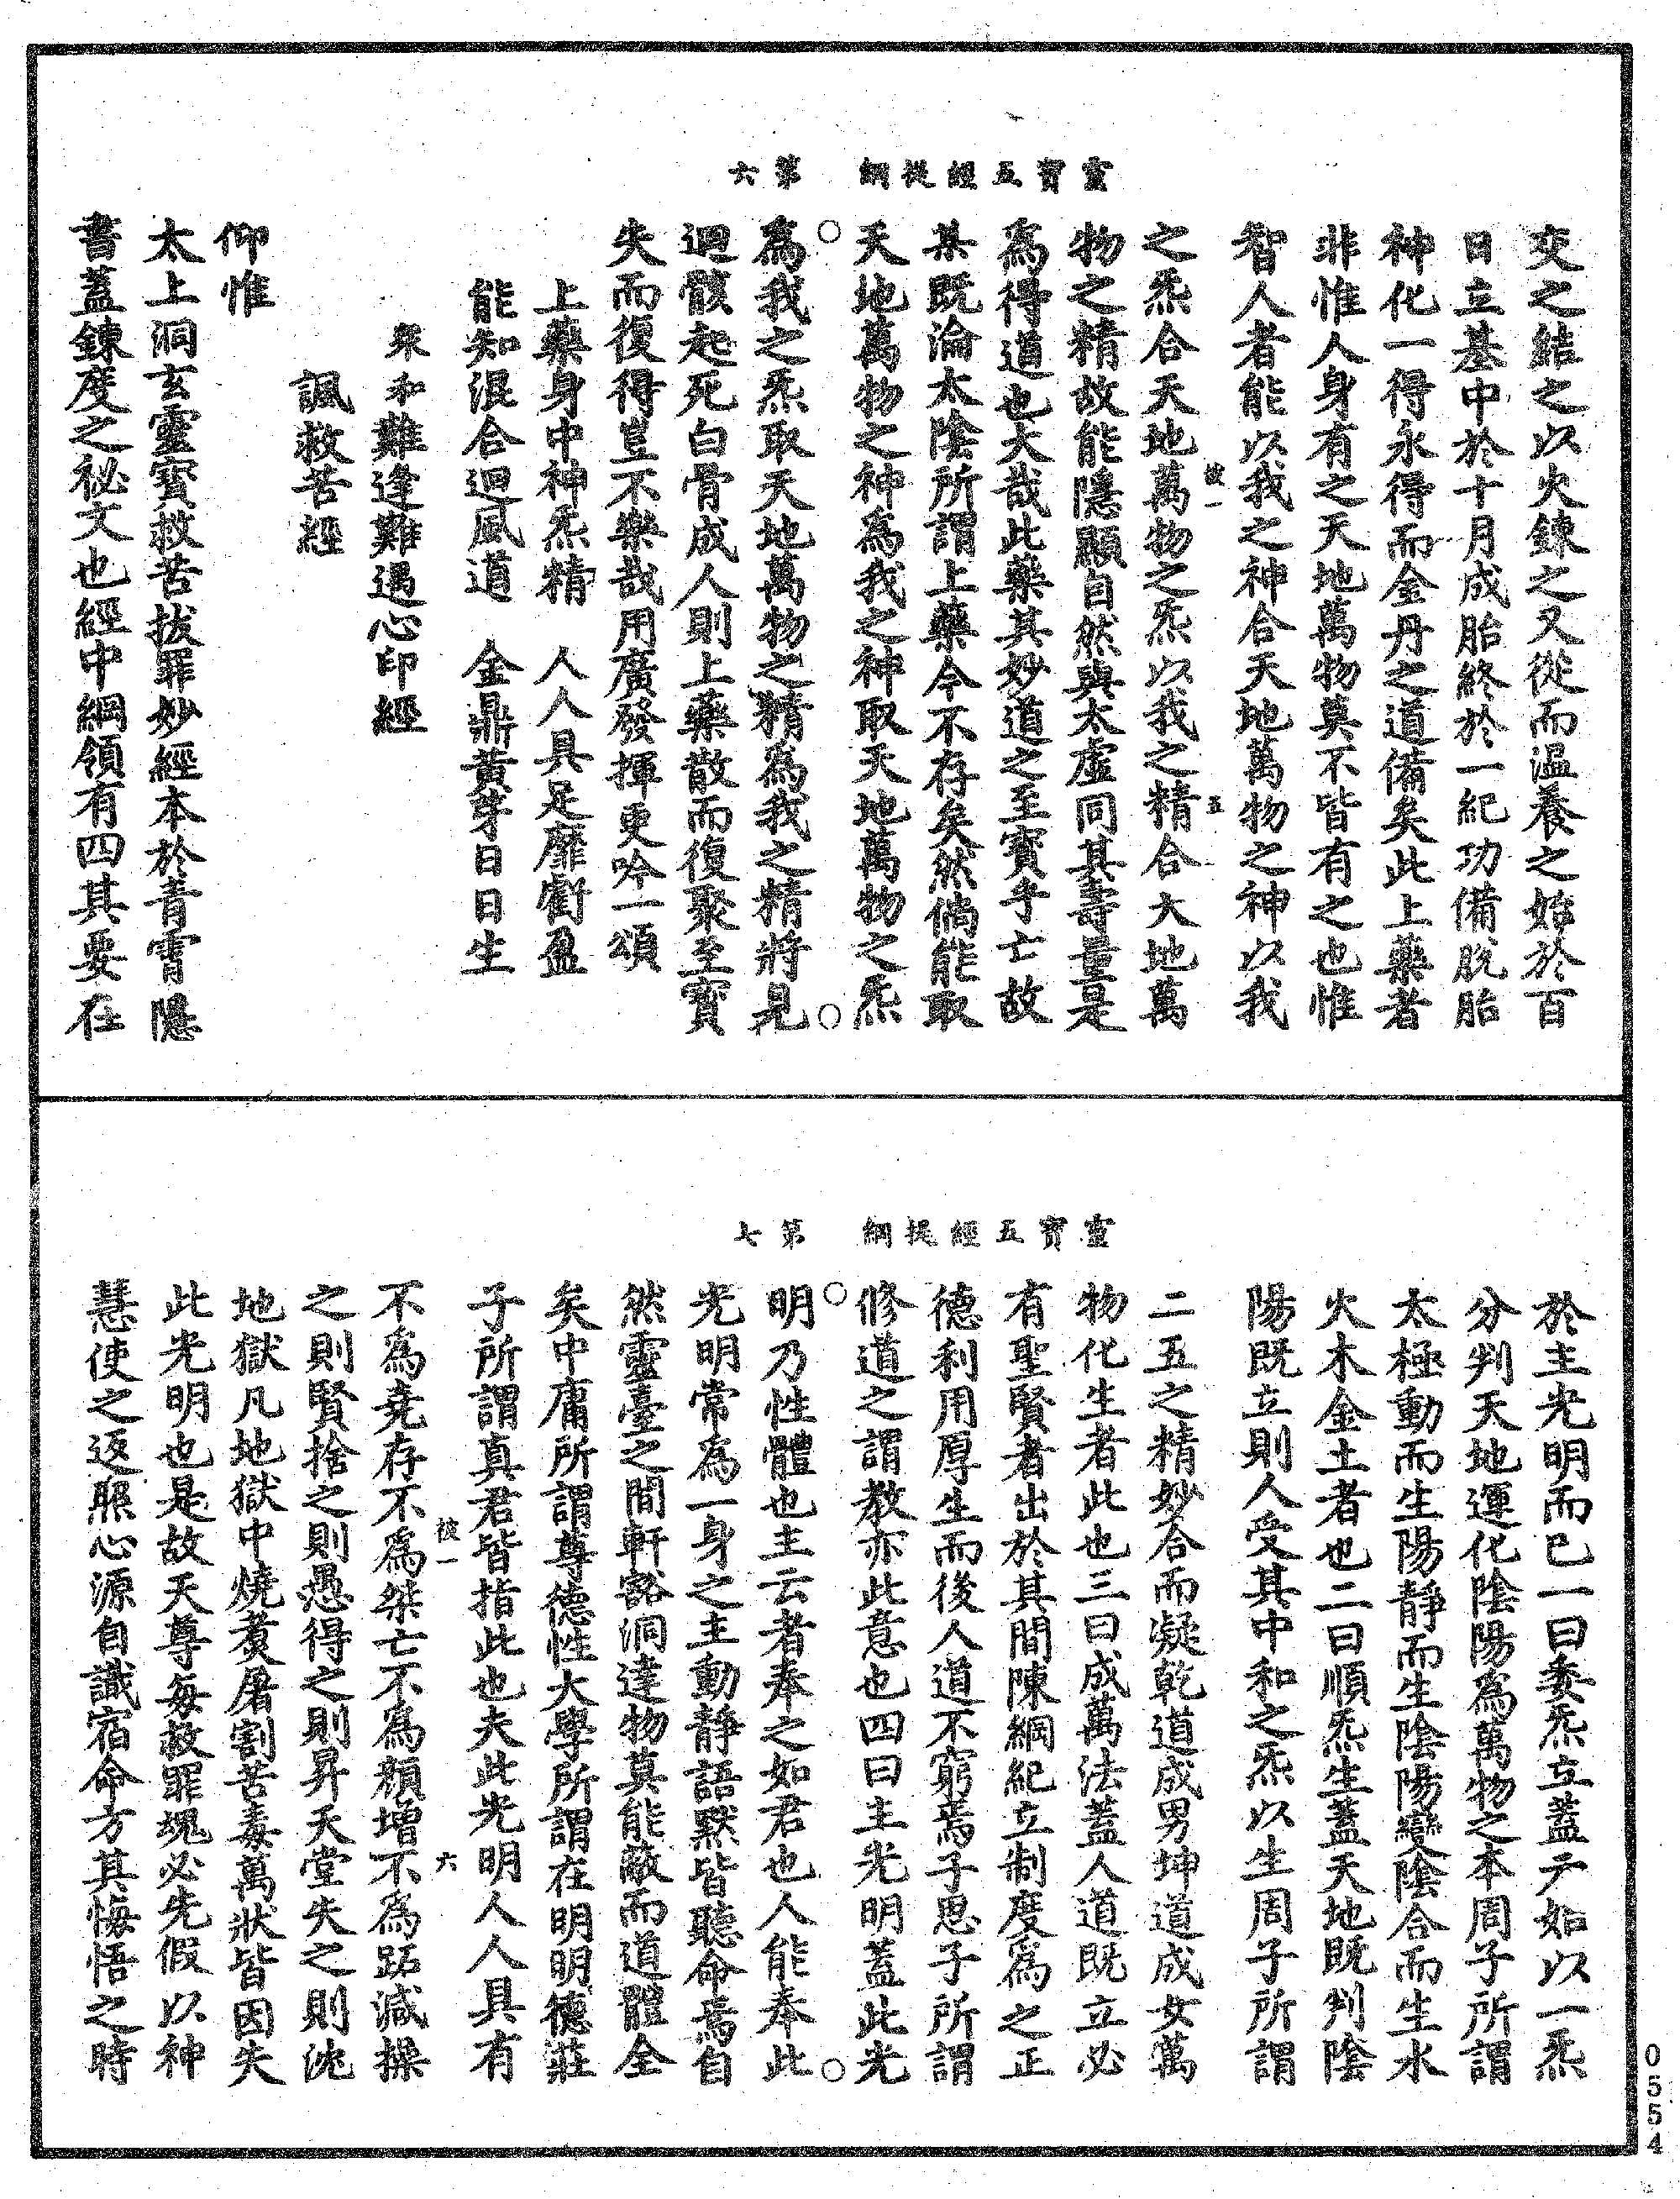 靈寶五經提綱　第六
交之結之以火鍊之又從而溫養之始於百
日立基中於十月成胎終於一紀功備脫胎
神化一得永得而金丹之道備矣此上藥者
非惟人身有之天地萬物莫不皆有之也惟
智人者能以我之神合天地萬物之神以我
之炁合天地萬物之炁以我之精合大地萬
物之精故能隱顯自然與太虛同其壽量是
為得道也大哉此藥其妙道之至寶乎亡故
某既淪太陰所謂上藥今不存矣然倘能取
天地萬物之神為我之神取天地萬物之炁
為我之炁取天地萬物之精為我之精將見
迴骸起死白骨成人則上藥散而復聚至寶
失而復得豈不樂哉用廣發揮更吟一頌
上藥身中神炁精　人人具足靡虧盈
能知混合迴風道　金鼎黃芽日日生
眾和難逢難遇心印經
諷救苦經
仰惟
太上洞玄靈寶救苦拔罪妙經本於青霄隱
書蓋鍊度之祕文也經中綱領有四其要在
靈寶五經提綱　第七
於主光明而已一曰委炁立蓋亐如以一炁
分判天地運化陰陽為萬物之本周子所謂
太極動而生陽靜而生陰陽變陰合而生水
火木金土者也二曰順炁生蓋天地既判陰
陽既立則人受其中和之炁以生周子所謂
二五之精妙合而凝乾道成男坤道成女萬
物化生者此也三曰成萬法蓋人道既立必
有聖賢者出於其間陳綱紀立制度為之正
德利用厚生而後人道不窮焉子思子所謂
修道之謂教亦此意也四曰主光明蓋此光
明乃性體也主云者奉之如君也人能奉此
光明常為一身之主動靜語默皆聽命焉自
然靈臺之間軒豁洞達物莫能蔽而道體全
矣中庸所謂尊德性大學所謂在明明德莊
子所謂真君皆指此也夫此光明人人具有
不為堯存不為桀亡不為顏增不為跖減操
之則賢捨之則愚得之則昇天堂失之則沈
地獄凡地獄中燒煑屠割苦毒萬狀皆因失
此光明也是故天尊每救罪魂必先假以神
慧使之返照心源自識宿命方其悔悟之時
0554